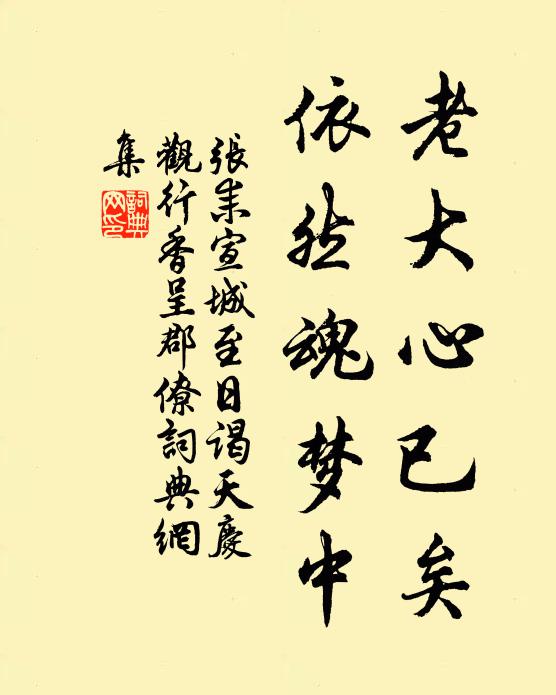 老大心已矣
依然魂梦中
張耒宣城至日谒天慶
觀行香呈郡僚詞典網
集
詞典
网印